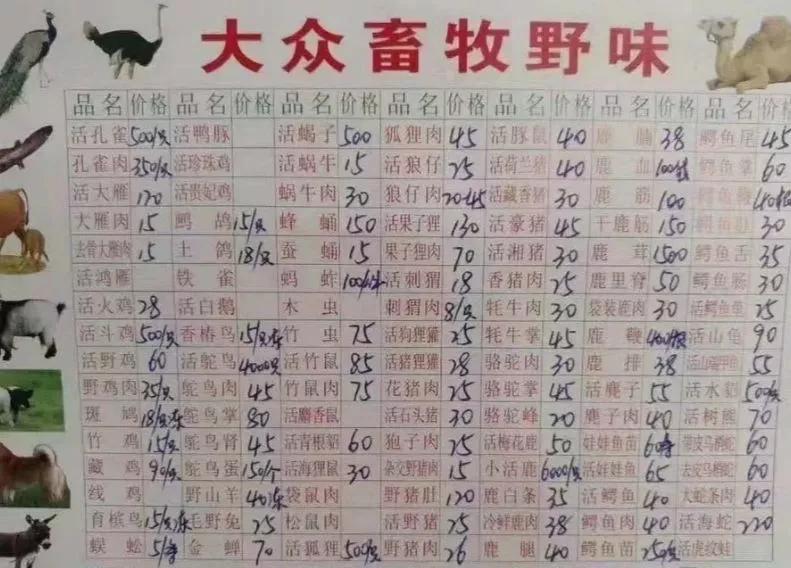 大众畜牧野味
品名 价格 品名 价格 品名 价格 品名 价格 品名 价格 品名 价格 品名 价格
活孔雀 500/只 活鸭豚 活蝎子 500 狐狸肉 45 活豚鼠 40 鹿 38 鳄鱼尾 45
孔雀肉 350/只 活珍珠鸡 活蜗牛 15 活狼仔 25 活荷兰猪 40 鹿血 鳄鱼掌 60
活大雁 120 活贵妃鸡 蜗牛肉 30 狼仔肉 20-45 活藏香猪 30 鹿筋 100 鳄鱼
大雁肉 15 鹧鸪 15/只 蜂蛹 150 活果子狸 130 活豪猪 45 干鹿筋 150 鳄鱼 30
去骨大雁肉 15 土鸽 18/只 蚕蛹 15 果子狸肉 70 活湘猪 30 鹿茸 1500 鳄鱼舌 35
活鸿雁 铁雀 蚂蚱 活刺猬 18 香猪肉 25 鹿里脊 50 鳄鱼肠 30
活火鸡 28 活白鹅 木虫 刺猬肉 8/只 牦牛肉 30 袋装鹿肉 30 活鳄鱼 25
活斗鸡 500/只 香椿鸟 竹虫 75 活狗狸獾 25 牦牛掌 45 鹿鞭 活山龟 90
活野鸡 60 活鸵鸟 4000只 活竹鼠 85 活猪狸獾 28 骆驼肉 30 鹿排 38 55
野鸡肉 35/只 鸵鸟肉 45 竹鼠肉 75 花猪肉 25 骆驼掌 45 活麂子 55 活水貂 500/只
斑鸠 鸵鸟掌 80 活麝香鼠 活石头猪 30 骆驼峰 20 麂子肉 40 活树熊 70
竹鸡 15/只 鸵鸟肾 45 活青根貂 60 狍子肉 25 活梅花鹿 50 娃娃鱼苗 带皮乌梢蛇 60
藏鸡 90/只 鸵鸟蛋 150/个 活海狸鼠 30 杂交野猪肉 15 小活鹿 6000/只 活娃娃鱼 65 去皮乌梢蛇 60
线鸡 野山羊 袋鼠肉 野猪肚 120 鹿白条 35 活鳄鱼 40 大蛇条肉 40
育槟鸟 毛野兔 25 松鼠肉 活野猪 25 冷鲜鹿肉 38 鳄鱼肉 40 活海蛇 220
蜈蚣 金蝉 70 活狐狸 500/只 野猪肉 26 鹿腿 40 鳄鱼苗 250/只 活虎纹蛙